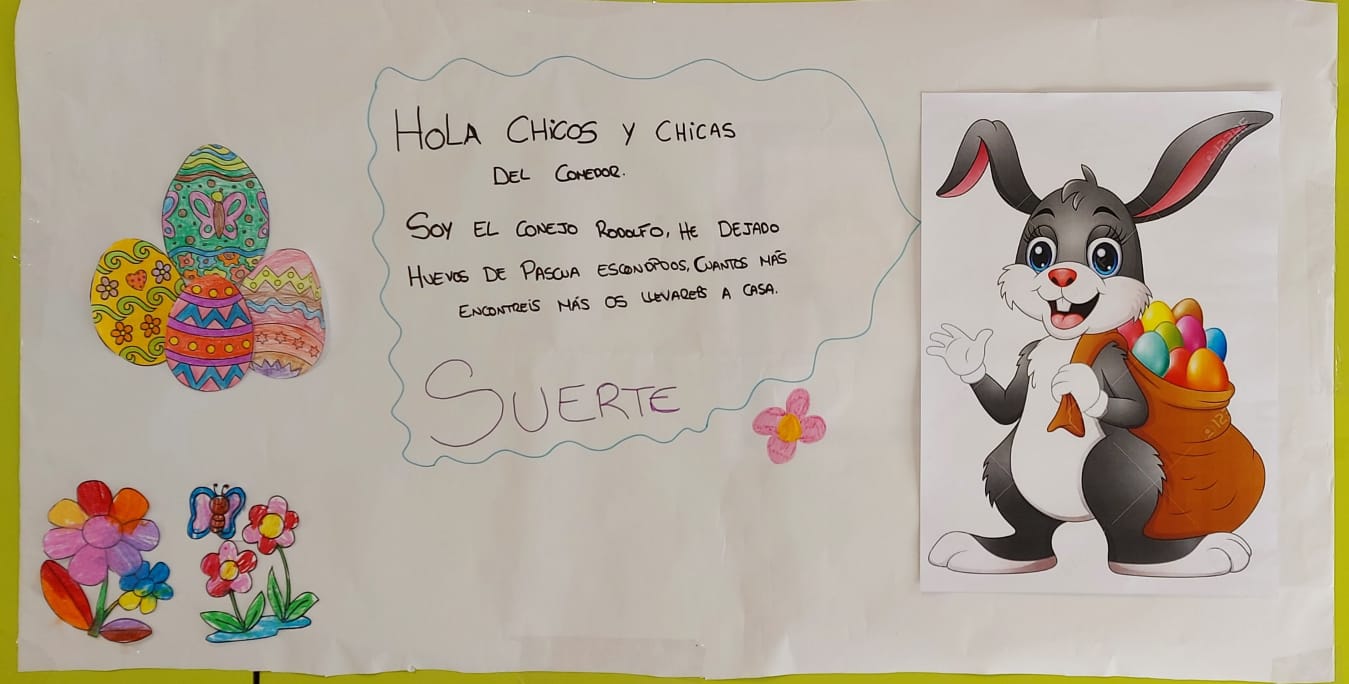 HOLA CHICOS Y CHICAS
DEL COMEDOR.
SOY EL CONEJO RODOLFO, HE DEJADO
HUEVOS DE PASCUA ESCONDIDOS, CUANTOS MÁS
ENCONTREIS MÁS OS LLEVAREIS A CASA.
SUERTE